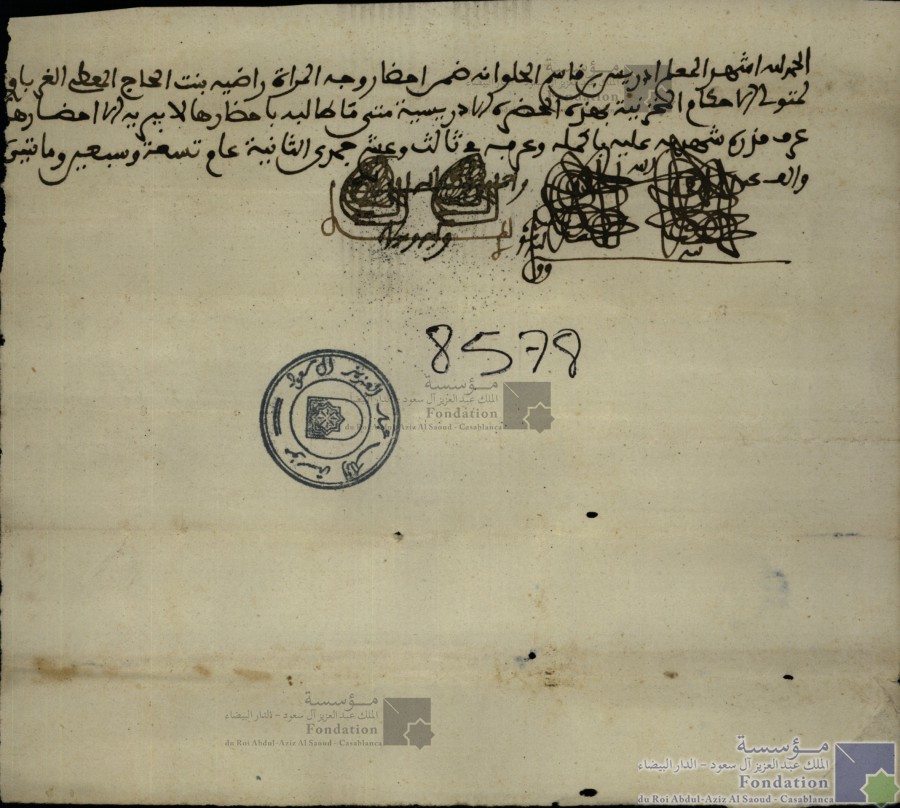 الحمد لله اشهد المعلم ادريس بن قاسم الحلو انه ضمن احضار وجه المرأة راضيه بنت الحاج المعطى الغرباوي
لمتولى الاحكام المخزنية بهذه الحضرة الادريسية متى ما طالبه باحضارها لا يبريه الا احضارها
عرف قدره شهد به عليه باكمله وعرفه في ثالث وعشري جمدى الثانية عام تسعة وسبعين ومائتين
والف
8578
مؤسسة الملك عبد العزيز آل سعود
مؤسسة
الملك عبد العزيز آل سعود - الدار البيضاء
Fondation
du Roi Abdul-Aziz Al Saoud - Casablanca
مؤسسة
الملك عبد العزيز آل سعود - الدار البيضاء
Fondation
du Roi Abdul-Aziz Al Saoud - Casablanca
مؤسسة
الملك عبد العزيز آل سعود - الدار البيضاء
Fondation
du Roi Abdul-Aziz Al Saoud - Casablanca